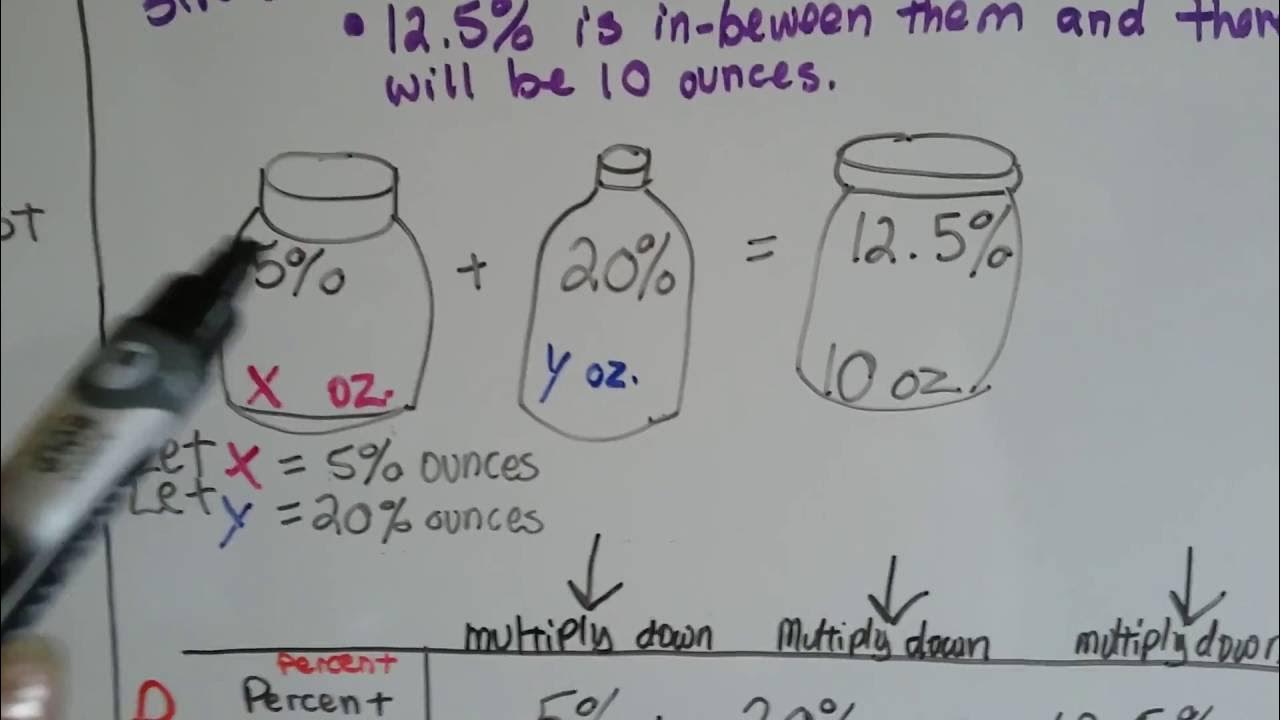 • 12.5% is in-beween them and
will be 10 ounces.
ot
5% + 20% = 12.5%
x oz. y oz. 10 oz.
Let x = 5% ounces
Let y = 20% ounces
multiply down multiply down multiply down
percent
Percent 5% 20% 12.5%